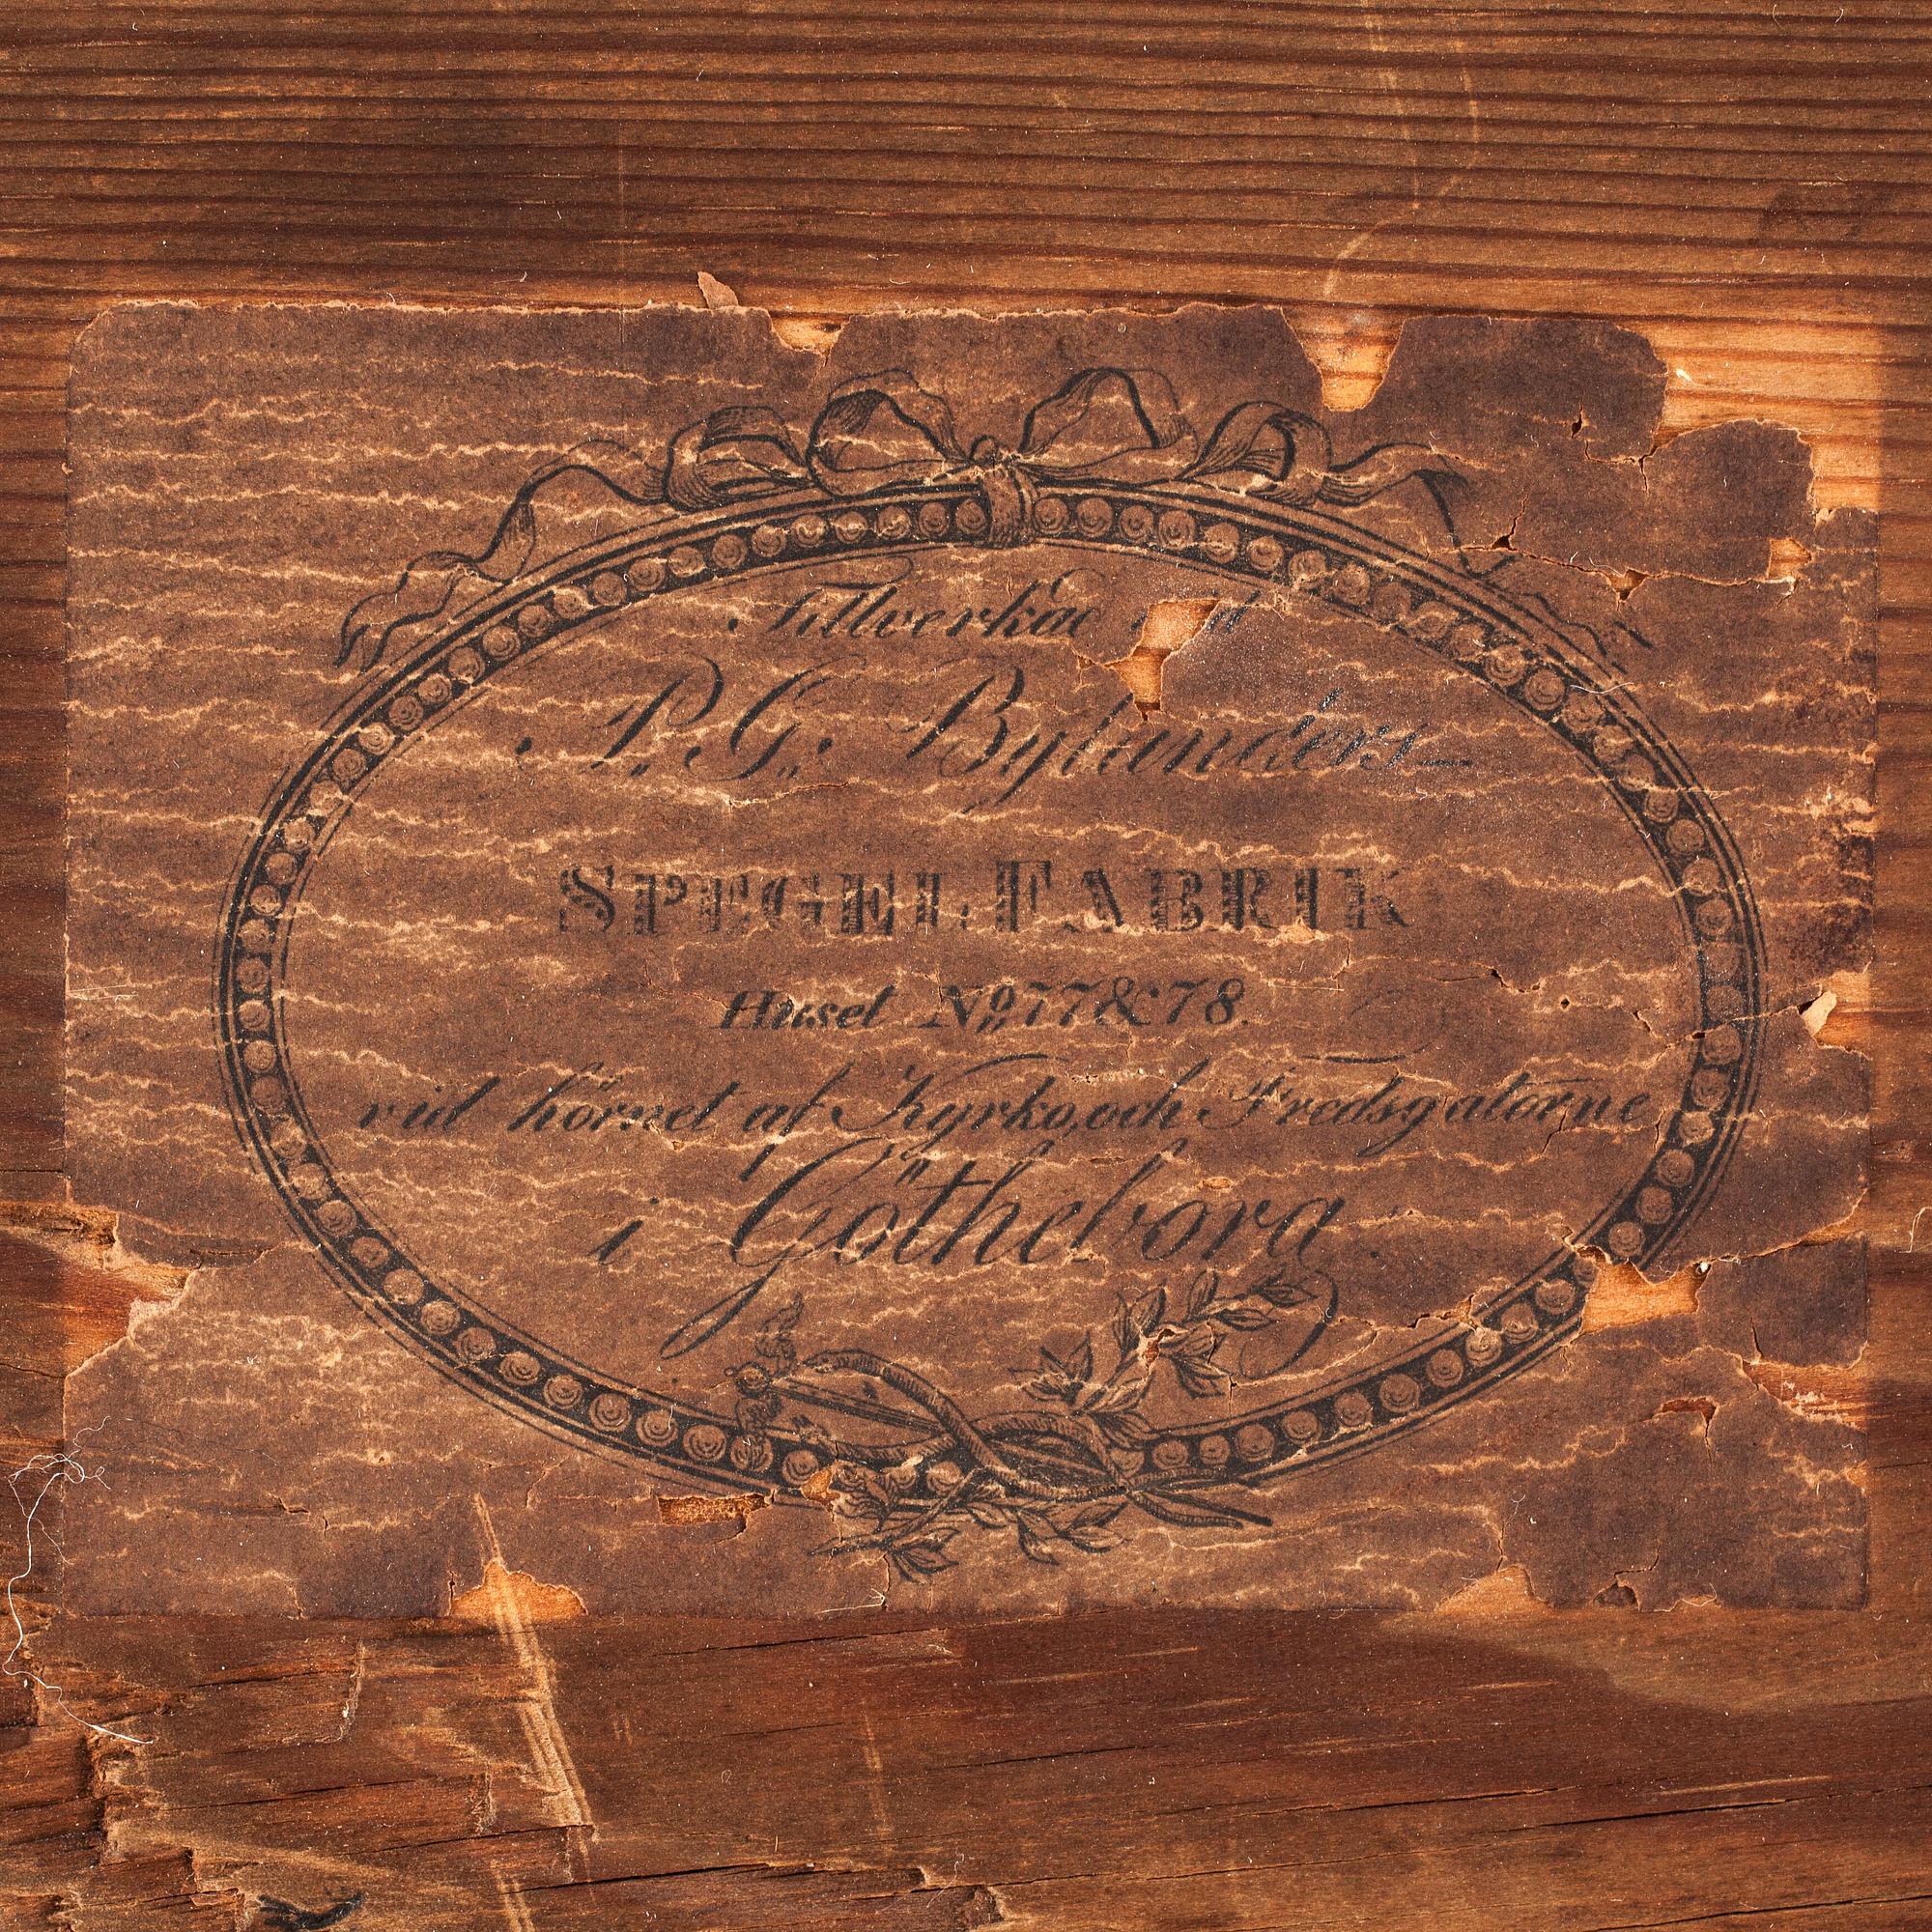 Tillverkad
P. G. Bylanders
SPEGELFABRIK
Huset No 77 & 78.
vid hörnet af Kyrko, och Fredsgatorne
i Götheborg.